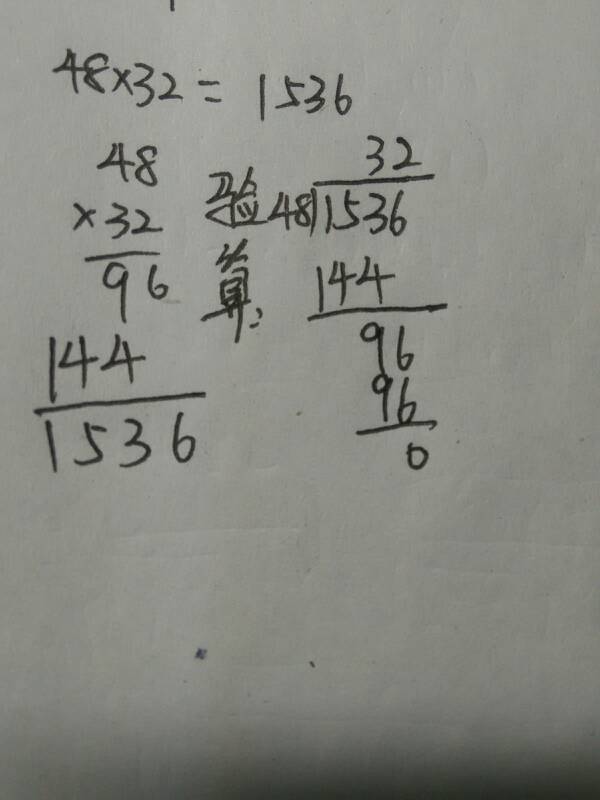 48×32=1536
48
×32
96
144
1536
验算:
32
48)1536
144
96
96
0